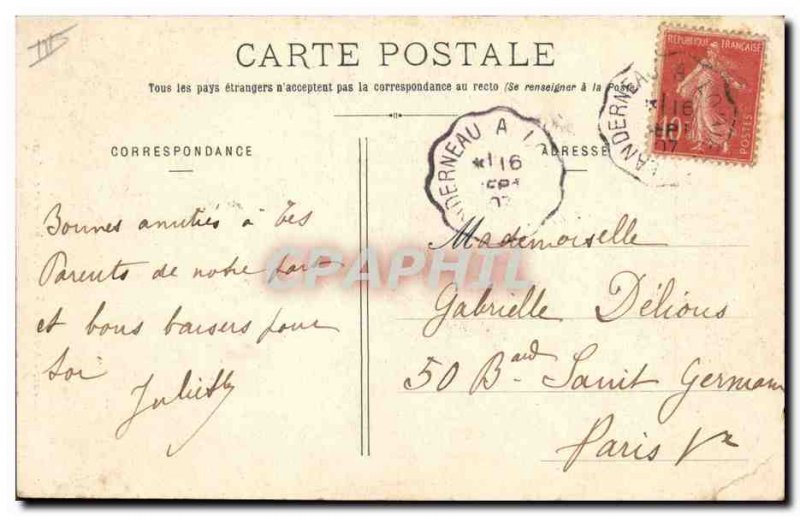 CARTE POSTALE
Tous les pays étrangers n'acceptent pas la correspondance au recto (Se renseigner à la Poste)
CORRESPONDANCE
ADRESSE
REPUBLIQUE FRANÇAISE
10
POSTES
LANDERNEAU A
16
SEPT
07
LANDERNEAU A
16
SEP
07
Bonnes amitiés à tes
Parents de notre part
et bons baisers pour
toi
Juliette
Mademoiselle
Gabrielle Délious
50 Bard Saint Germain
Paris Ve
CPAPHIL